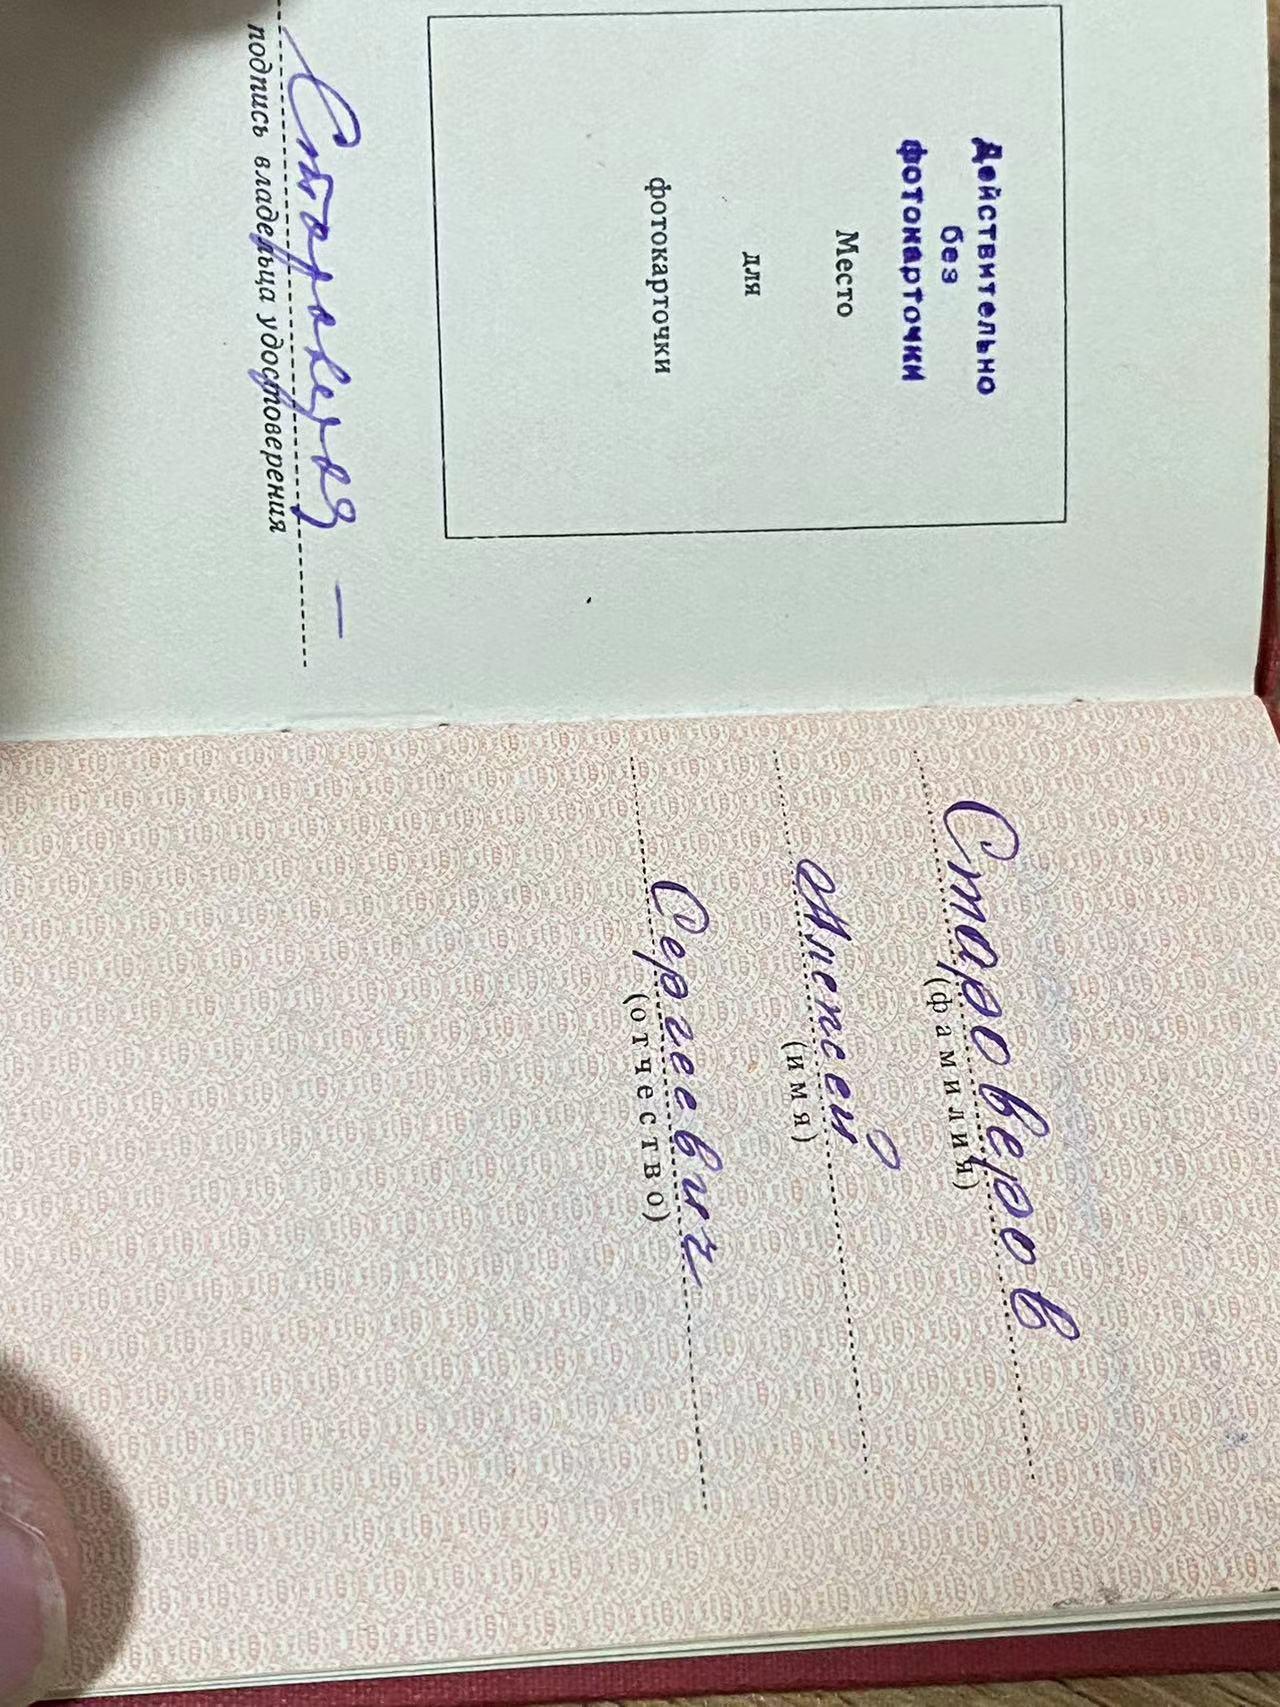 Действительно
без
фотокарточки
Место
для
фотокарточки
подпись владельца удостоверения
Староверов
(фамилия)
Алексей
(имя)
Сергеевич
(отчество)